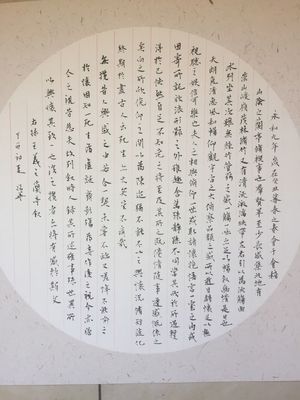 永和九年歲在癸丑暮春之初會于會稽
山陰之蘭亭脩禊事也群賢畢至少長咸集此地有
崇山峻嶺茂林脩竹又有清流激湍映帶左右引以為流觴曲
水列坐其次雖無絲竹管絃之盛一觴一詠亦足以暢敘幽情是日也
天朗氣清惠風和暢仰觀宇宙之大俯察品類之盛所以遊目騁懷足以極
視聽之娛信可樂也夫人之相與俯仰一世或取諸懷抱悟言一室之內或
因寄所託放浪形骸之外雖趣舍萬殊靜躁不同當其欣於所遇暫
得於己快然自足不知老之將至及其所之既惓情隨事遷感慨係之
矣向之所欣俛仰之間以為陳迹猶不能不以之興懷況脩短隨化
終期於盡古人云死生亦大矣豈不痛哉
每攬昔人興感之由若合一契未嘗不臨文嗟悼不能喻之
於懷固知一死生為虛誕齊彭殤為妄作後之視今亦由
今之視昔悲夫故列敘時人錄其所述雖世殊事異所
以興懷其致一也後之攬者亦將有感於斯文
右錄王羲之蘭亭敘
丁酉初夏